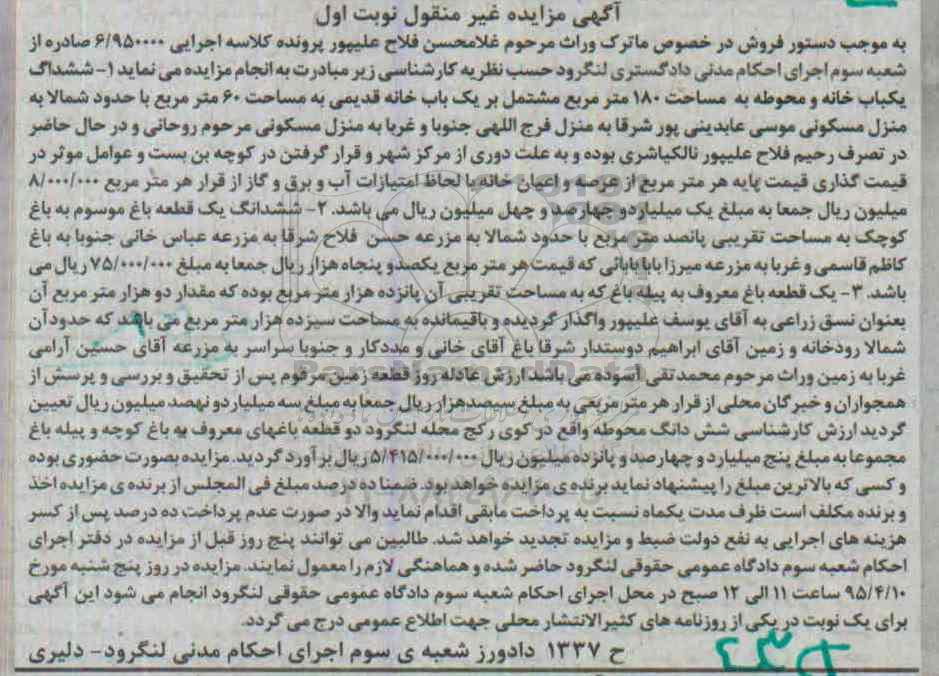 آگهی مزایده غیر منقول نوبت اول
به موجب دستور فروش در خصوص ماترک وراث مرحوم غلامحسن فلاح علیپور پرونده کلاسه اجرایی ۶/۹۵۰۰۰۰ صادره از
شعبه سوم اجرای احکام مدنی دادگستری لنگرود حسب نظریه کارشناسی زیر مبادرت به انجام مزایده می نماید ۱- ششداگ
یکباب خانه و محوطه به مساحت ۱۸۰ متر مربع مشتمل بر یک باب خانه قدیمی به مساحت ۶۰ متر مربع با حدود شمالا به
منزل مسکونی موسی عابدینی پور شرقا به منزل فرج اللهی جنوبا و غربا به منزل مسکونی مرحوم روحانی و در حال حاضر
در تصرف رحیم فلاح علیپور نالکیاشری بوده و به علت دوری از مرکز شهر و قرار گرفتن در کوچه بن بست و عوامل موثر در
قیمت گذاری قیمت پایه هر متر مربع از عرصه و اعیان خانه با لحاظ امتیازات آب و برق و گاز از قرار هر متر مربع ۸/۰۰۰/۰۰۰
میلیون ریال جمعا به مبلغ یک میلیاردو چهارصد و چهل میلیون ریال می باشد. ۲- ششدانگ یک قطعه باغ موسوم به باغ
کوچک به مساحت تقریبی پانصد متر مربع با حدود شمالا به مزرعه حسن فلاح شرقا به مزرعه عباس خانی جنوبا به باغ
کاظم قاسمی و غربا به مزرعه میرزا بابا بابائی که قیمت هر متر مربع یکصدو پنجاه هزار ریال جمعا به مبلغ ۷۵/۰۰۰/۰۰۰ ریال می
باشد. ۳- یک قطعه باغ معروف به پیله باغ که به مساحت تقریبی آن پانزده هزار متر مربع بوده که مقدار دو هزار متر مربع آن
بعنوان نسق زراعی به آقای یوسف علیپور واگذار گردیده و باقیمانده به مساحت سیزده هزار متر مربع می باشد که حدود آن
شمالا رودخانه و زمین آقای ابراهیم دوستدار شرقا باغ آقای خانی و مددکار و جنوبا سراسر به مزرعه آقای حسین آرامی
غربا به زمین وراث مرحوم محمدتقی آسوده می باشد ارزش عادله روز قطعه زمین مرقوم پس از تحقیق و بررسی و پرسش از
همجواران و خبرگان محلی از قرار هر متر مربعی به مبلغ سیصدهزار ریال جمعا به مبلغ سه میلیاردو نهصد میلیون ریال تعیین
گردید ارزش کارشناسی شش دانگ محوطه واقع در کوی رکج محله لنگرود دو قطعه باغهای معروف به باغ کوچه و پیله باغ
مجموعا به مبلغ پنج میلیارد و چهارصد و پانزده میلیون ریال ۵/۴۱۵/۰۰۰/۰۰۰ ریال برآورد گردید. مزایده بصورت حضوری بوده
و کسی که بالاترین مبلغ را پیشنهاد نماید برنده ی مزایده خواهد بود. ضمنا ده درصد مبلغ فی المجلس از برنده ی مزایده اخذ
و برنده مکلف است ظرف مدت یکماه نسبت به پرداخت مابقی اقدام نماید والا در صورت عدم پرداخت ده درصد پس از کسر
هزینه های اجرایی به نفع دولت ضبط و مزایده تجدید خواهد شد. طالبین می توانند پنج روز قبل از مزایده در دفتر اجرای
احکام شعبه سوم دادگاه عمومی حقوقی لنگرود حاضر شده و هماهنگی لازم را معمول نمایند. مزایده در روز پنج شنبه مورخ
۹۵/۴/۱۰ ساعت ۱۱ الی ۱۲ صبح در محل اجرای احکام شعبه سوم دادگاه عمومی حقوقی لنگرود انجام می شود این آگهی
برای یک نوبت در یکی از روزنامه های کثیرالانتشار محلی جهت اطلاع عمومی درج می گردد.
ح ۱۳۳۷ دادورز شعبه ی سوم اجرای احکام مدنی لنگرود- دلیری